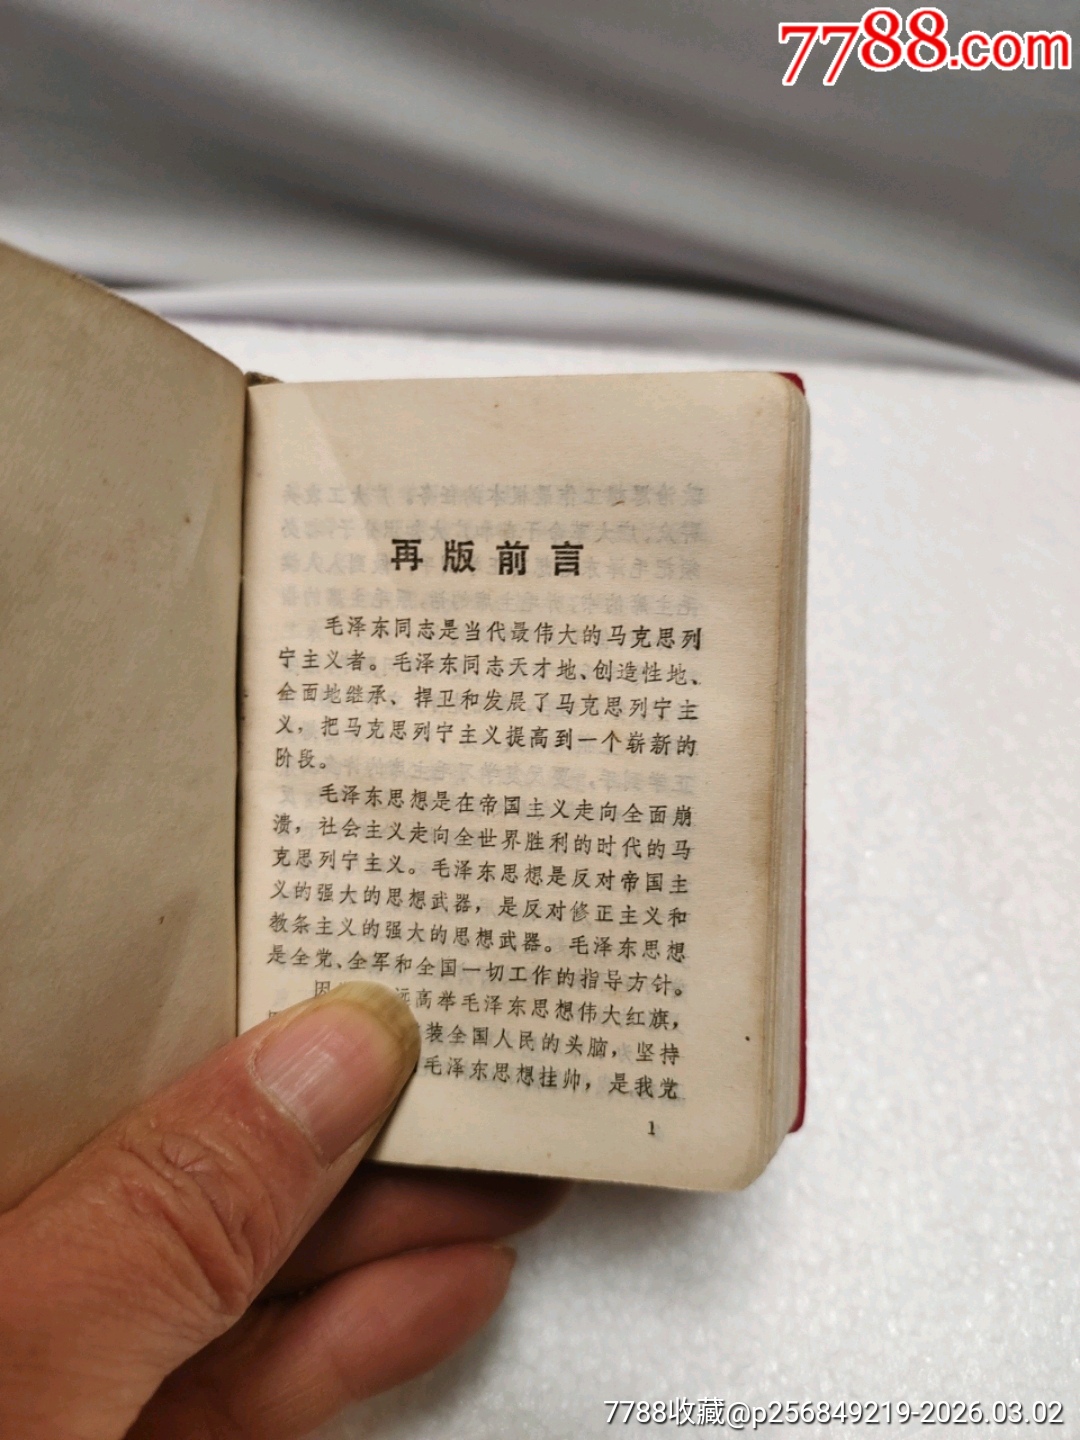 7788.com
再版前言
毛泽东同志是当代最伟大的马克思列
宁主义者。毛泽东同志天才地、创造性地、
全面地继承、捍卫和发展了马克思列宁主
义，把马克思列宁主义提高到一个崭新的
阶段。
毛泽东思想是在帝国主义走向全面崩
溃，社会主义走向全世界胜利的时代的马
克思列宁主义。毛泽东思想是反对帝国主
义的强大的思想武器，是反对修正主义和
教条主义的强大的思想武器。毛泽东思想
是全党、全军和全国一切工作的指导方针。
因 远高举毛泽东思想伟大红旗，
装全国人民的头脑，坚持
毛泽东思想挂帅，是我党
1
7788收藏@p256849219-2026.03.02